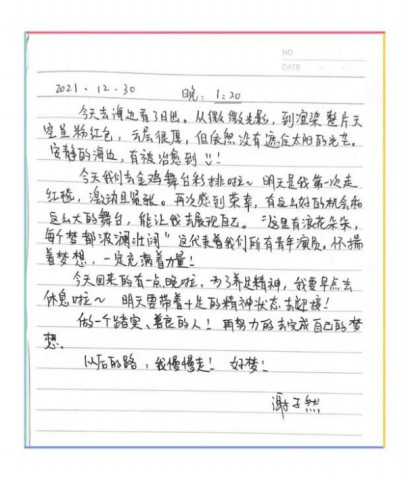 NO
DATE
2021.12.30 晚：1:20
今天去海边看了日出。从微微光影，到渲染整片天
空呈粉红色，云层很厚，但依然没有遮住太阳的光芒。
安静的海边，有被治愈到！
今天我们去金鸡舞台彩排啦～ 明天是我第一次走
红毯，激动且紧张。再次感到荣幸，有这么好的机会和
这么大的舞台，能让我去展现自己。“这里有浪花朵朵，
每个梦都波澜壮阔”这代表着我们所有青年演员。怀揣
着梦想，一定充满着力量！
今天回来的有一点晚啦，为了养足精神，我要早点去
休息啦～ 明天要带着十足的精神状态去迎接！
做一个踏实、着急的人！再努力的去完成自己的梦
想。
以后的路，我慢慢走！好梦！
谢子然